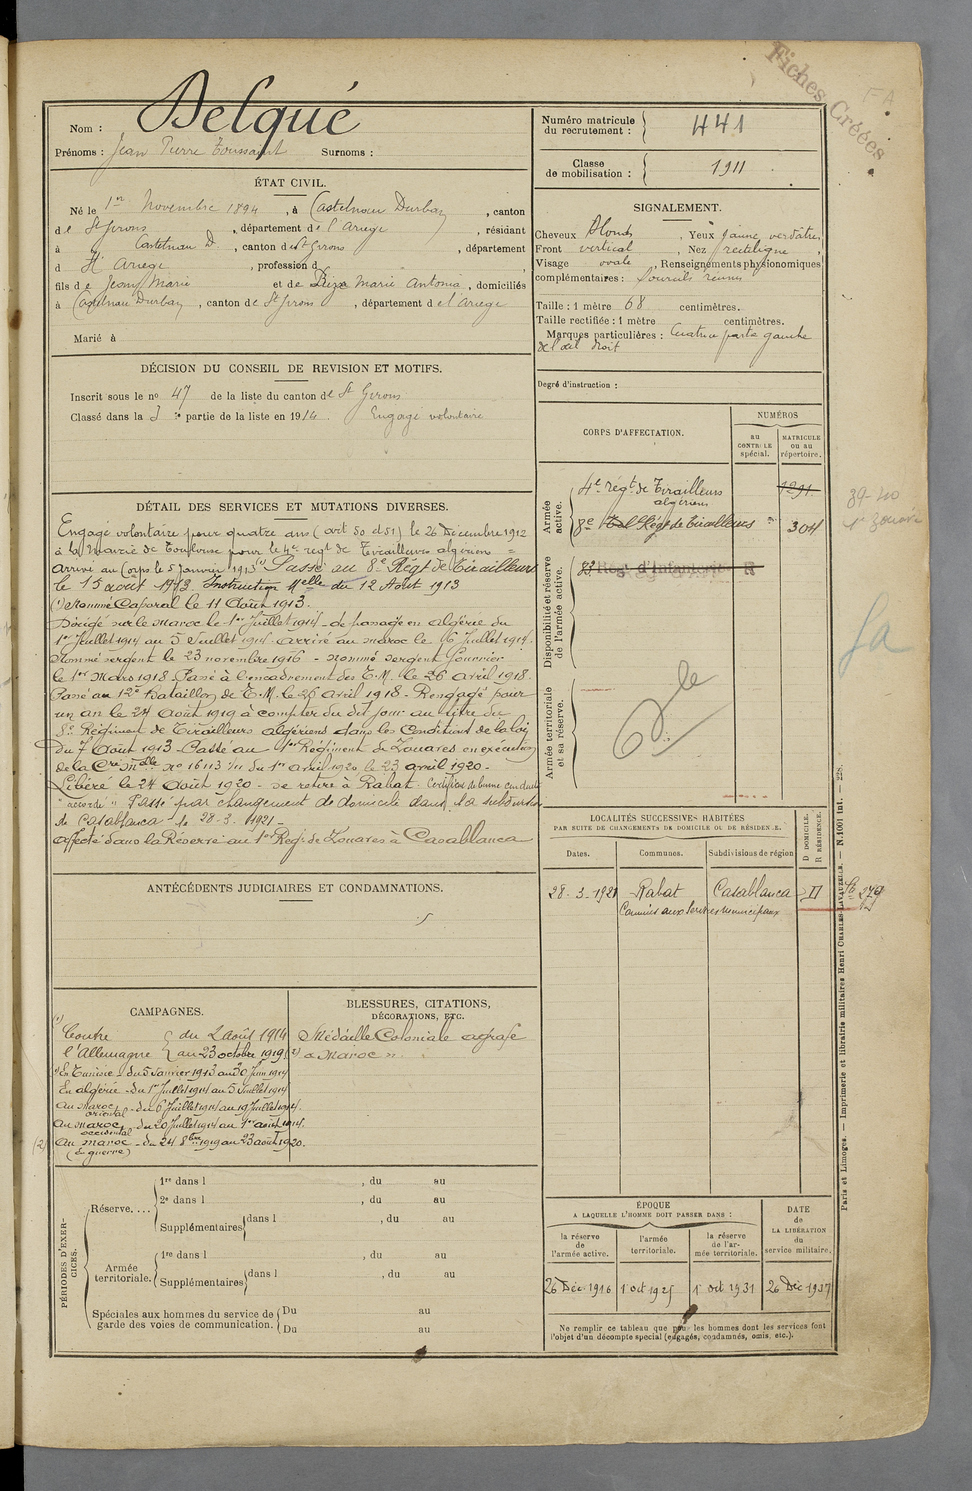 Fiches Créées
Nom : Delqué
Prénoms : Jean Pierre Toussaint Surnoms :
Numéro matricule du recrutement : 441
Classe de mobilisation : 1911
ÉTAT CIVIL.
Né le 1er Novembre 1894, à Castelnau Durban, canton
de St Girons, département de l'Ariège, résidant
à Castelnau D., canton de St Girons, département
d Ariège, profession d
fils de Jean Marie et de Marie Antonia, domiciliés
à Castelnau Durban, canton de St Girons, département de l'Ariège
Marié à
SIGNALEMENT.
Cheveux blonds, Yeux jaune verdâtre,
Front vertical, Nez rectiligne,
Visage ovale, Renseignements physionomiques
complémentaires : Sourcils réunis
Taille : 1 mètre 68 centimètres.
Taille rectifiée : 1 mètre centimètres.
Marques particulières : Cicatrice partie gauche
de l'œil droit
Degré d'instruction :
DÉCISION DU CONSEIL DE REVISION ET MOTIFS.
Inscrit sous le no 47 de la liste du canton de St Girons
Classé dans la 3 e partie de la liste en 1914. Engagé volontaire
DÉTAIL DES SERVICES ET MUTATIONS DIVERSES.
Engagé volontaire pour quatre ans (art 50 et 51) le 26 Décembre 1912
à la Mairie de Toulouse pour le 4e regt de Tirailleurs algériens =
arrivé au Corps le 5 Janvier 1913 (1) Passé au 8e Régt de Tirailleurs
le 15 août 1913. Instruction Melle du 12 Août 1913
(1) Nommé Caporal le 11 Août 1913.
Dirigé sur le Maroc le 1er Juillet 1914 - de passage en algérie du
1er Juillet 1914 au 5 Juillet 1914 - arrivé au Maroc le 6 Juillet 1914.
Nommé sergent le 23 novembre 1916 - nommé sergent fourrier
le 1er Mars 1918 Passé à l'encadrement des T.M. le 26 avril 1918.
Passé au 12e Bataillon de T.M. le 26 avril 1918 - Rengagé pour
un an le 24 Août 1919 à compter du dit jour au titre du
8e Régiment de Tirailleurs algériens dans les Conditions de la loi
du 7 Août 1913 - Passé au 1er Régiment de Zouaves en exécution
de la Cre Melle no 16113 1/11 du 1er avril 1920 le 23 avril 1920 -
Libéré le 24 Août 1920 - se retire à Rabat - Certificat de bonne conduite
"accordé" Passé par changement de domicile dans la subdivision
de Casablanca - le 28-3-1921 -
affecté dans la Réserve au 1er Regt de Zouaves à Casablanca
CORPS D'AFFECTATION.
NUMÉROS
au CONTROLE spécial.
MATRICULE ou au répertoire.
Armée active.
4e régt de Tirailleurs algériens 1291
8e Régt de Tirailleurs 304
Disponibilité et réserve de l'armée active.
Régt d'Infanterie
Armée territoriale et sa réserve.
39-40
1er Zouave
LOCALITÉS SUCCESSIVES HABITÉES
PAR SUITE DE CHANGEMENTS DE DOMICILE OU DE RÉSIDENCE.
D DOMICILE. R RÉSIDENCE.
Dates. Communes. Subdivisions de région
28-3-1921 Rabat Casablanca D
Commis aux Services Municipaux
ANTÉCÉDENTS JUDICIAIRES ET CONDAMNATIONS.
CAMPAGNES.
(1) Contre l'Allemagne du 2 Août 1914 au 23 octobre 1919
En Tunisie - du 5 Janvier 1913 au 30 Juin 1914
En algérie - du 1er Juillet 1914 au 5 Juillet 1914
Au Maroc oriental - du 6 Juillet 1914 au 19 Juillet 1914.
Au Maroc occidental du 20 Juillet 1914 au 1er août 1914.
(2) Au Maroc - du 24 8bre 1919 au 23 août 1920.
(en guerre)
BLESSURES, CITATIONS,
DÉCORATIONS, ETC.
Médaille Coloniale agrafe
"Maroc"
PÉRIODES D'EXERCICES.
Réserve....
1re dans l , du au
2e dans l , du au
Supplémentaires dans l , du au
Armée territoriale.
1re dans l , du au
Supplémentaires dans l , du au
Spéciales aux hommes du service de garde des voies de communication.
Du au
Du au
ÉPOQUE
A LAQUELLE L'HOMME DOIT PASSER DANS :
DATE DE LA LIBÉRATION du service militaire.
la réserve de l'armée active.
l'armée territoriale.
la réserve de l'armée territoriale.
26 Déc. 1916 1 oct 1925 1 oct 1931 26 Déc 1937
Ne remplir ce tableau que pour les hommes dont les services font
l'objet d'un décompte spécial (engagés, condamnés, omis, etc.).
Paris et Limoges. — Imprimerie et librairie militaires Henri CHARLES-LAVAUZELLE. — N. 1001 int. — 228.